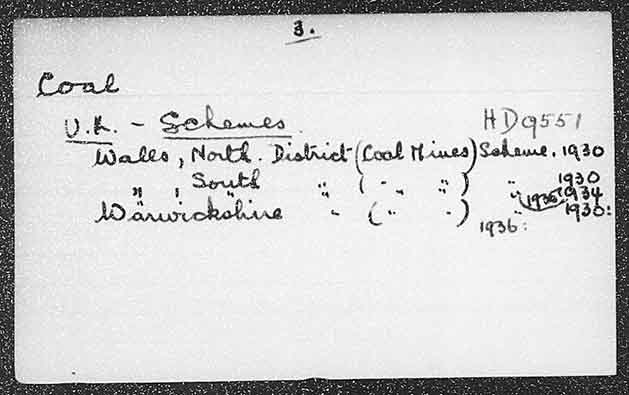 3.
Coal
U.K. - Schemes. HD9551
Wales, North. District (Coal Mines) Scheme. 1930
" , South " ( " " ) " 1930
" " 1934
Warwickshire " ( " " ) " (1936) 1930:
1936: